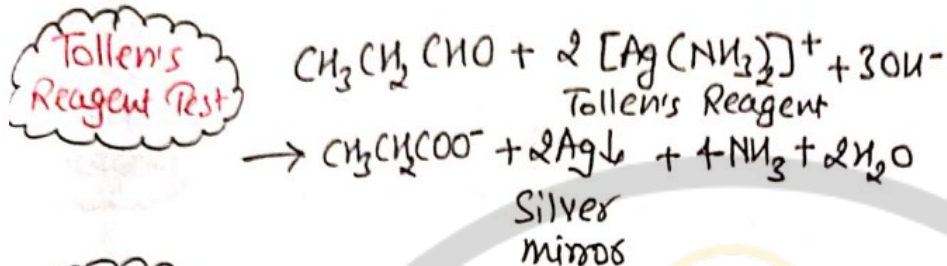 Tollen's
Reagent Test
CH₃CH₂CHO + 2 [Ag(NH₃)₂]⁺ + 3OH⁻
Tollen's Reagent
→ CH₃CH₂COO⁻ + 2Ag↓ + 4NH₃ + 2H₂O
Silver
mirror